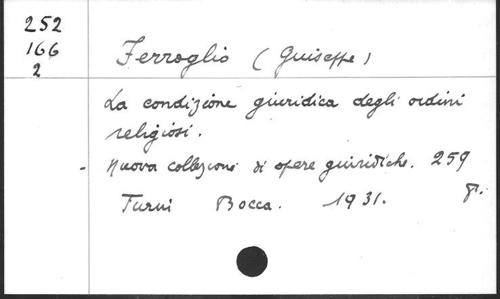 252
166
2
Ferroglio (Guiseppe)
La condizione giuridica degli ordini
religiosi.
- Nuova collezioni di opere giuridiche. 259
p.
Turni Bocca. 1931.